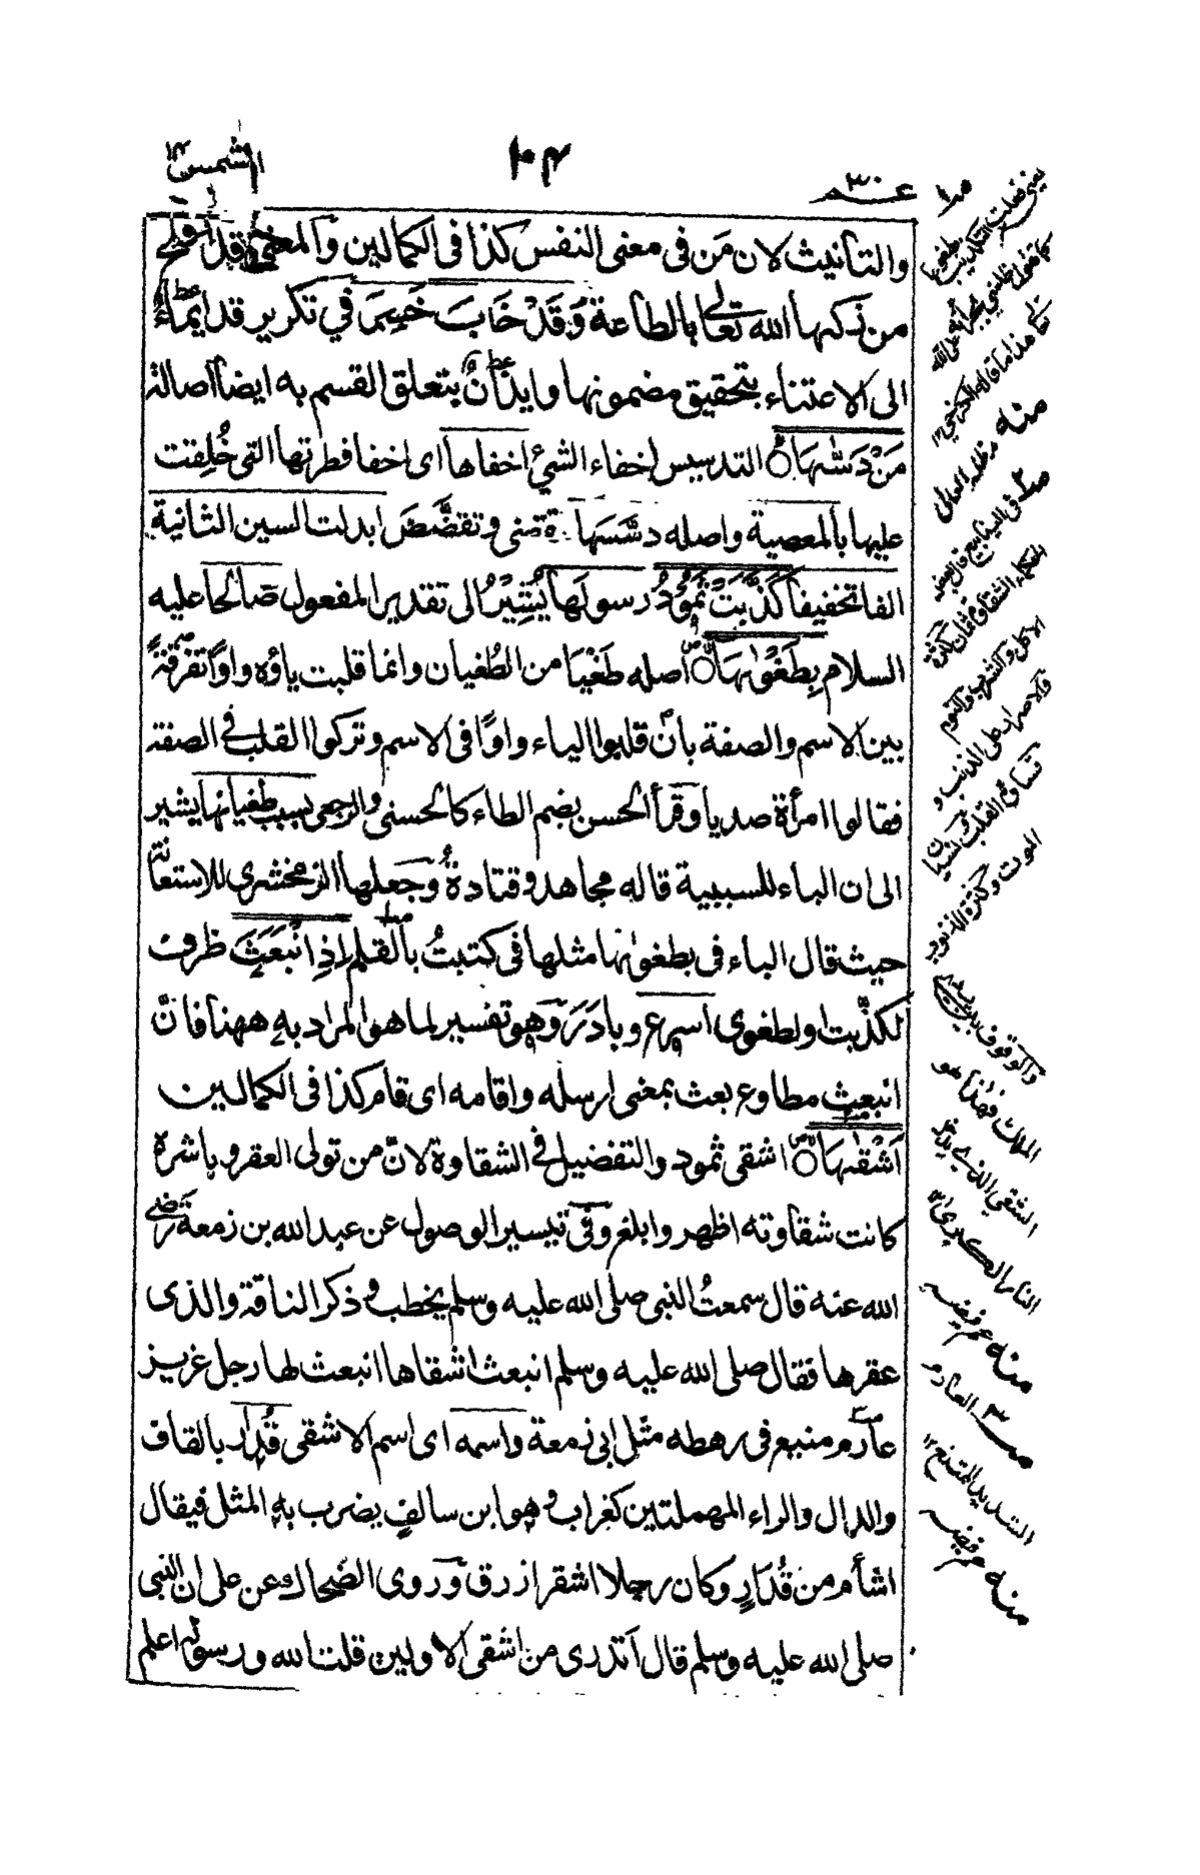 الشمس
١٠٤
عــم ٣٠
والتأنيث لان مَن فى معنى النفس كذا فى الكمالين والمعنى قد افلح
من زكها الله تعالى بالطاعة وَقَدْ خَابَ خَسِرَ في تكرير قد ايماءٌ
الى الاعتناء بتحقيق مضمونها وايذانٌ بتعلق القسم به ايضاً اصالة
مَنْ دَسّٰىهَا التدسيس اخفاء الشئ اخفاها اى اخفا فطرتها التى خُلِقت
عليها بالمعصية واصله دسَّسَهَا كتقضى وتقضَّضَ ابدلت السين الثانية
الفا تخفيفا كَذَّبَتْ ثَمُوْدُ رسولَها يُشِيْرُ الى تقدير المفعول صَالحًا عليه
السلام بِطَغْوٰىهَا اصله طَغْيَا من الطُغيان وانما قلبت ياؤه واوًا تفرقةً
بين الاسم والصفة بأن قلبوا الياء واوًا فى الاسم وتركوا القلب فى الصفة
فقالوا امرأة صديا وقرأ الحسن بضم الطاء كالحسنى والرجعى بسبب طغيانها يشير
الى ان الباء للسببية قاله مجاهد وقتادةُ وجعلها الزمخشرى للاستعانة
حيث قال الباء فى بطغوٰىها مثلها فى كتبتُ بالقلم اِذِ انْبَعَثَ ظرف
لكذَّبت او لطغوى اسرع وبادَرَ وهو تفسير لما هو المراد به ههنا فانَّ
انبعث مطاوع بعث بمعنى ارسله واقامه اى قام كذا فى الكمالين
اَشْقٰىهَا اشقى ثمود والتفضيل فى الشقاوة لانّ من تولى العقر وباشره
كانت شقاوته اظهر وابلغ وفى تيسير الوصول عن عبد الله بن زمعة رضى
الله عنه قال سمعتُ النبى صلى الله عليه وسلم يخطب وذكر الناقة والذى
عقرها فقال صلى الله عليه وسلم انبعث اشقاها انبعث لها رجل عزيز
عارم منيع فى رهطه مثل ابى زمعة واسمه اى اسم الاشقى قُدار بالقاف
والدال والراء المهملتين كغراب وهو ابن سالفٍ يضرب به المثل فيقال
اشأم من قُدَارٍ وكان رجلا اشقر ازرق وروى الضحاك عن على ان النبى
صلى الله عليه وسلم قال اتدرى من اشقى الاولين قلت الله ورسوله اعلم
منه مد ظله العالى
الاكل والشرب والنوم
والاصرار على الذنب و
الموت وكثرة الذنوب
والوقوف بين يدى
الملك فهذا هو
الشقى الذى يصلى
النار الكبرى ١٢
العارم
الشديد الممتنع ١٢